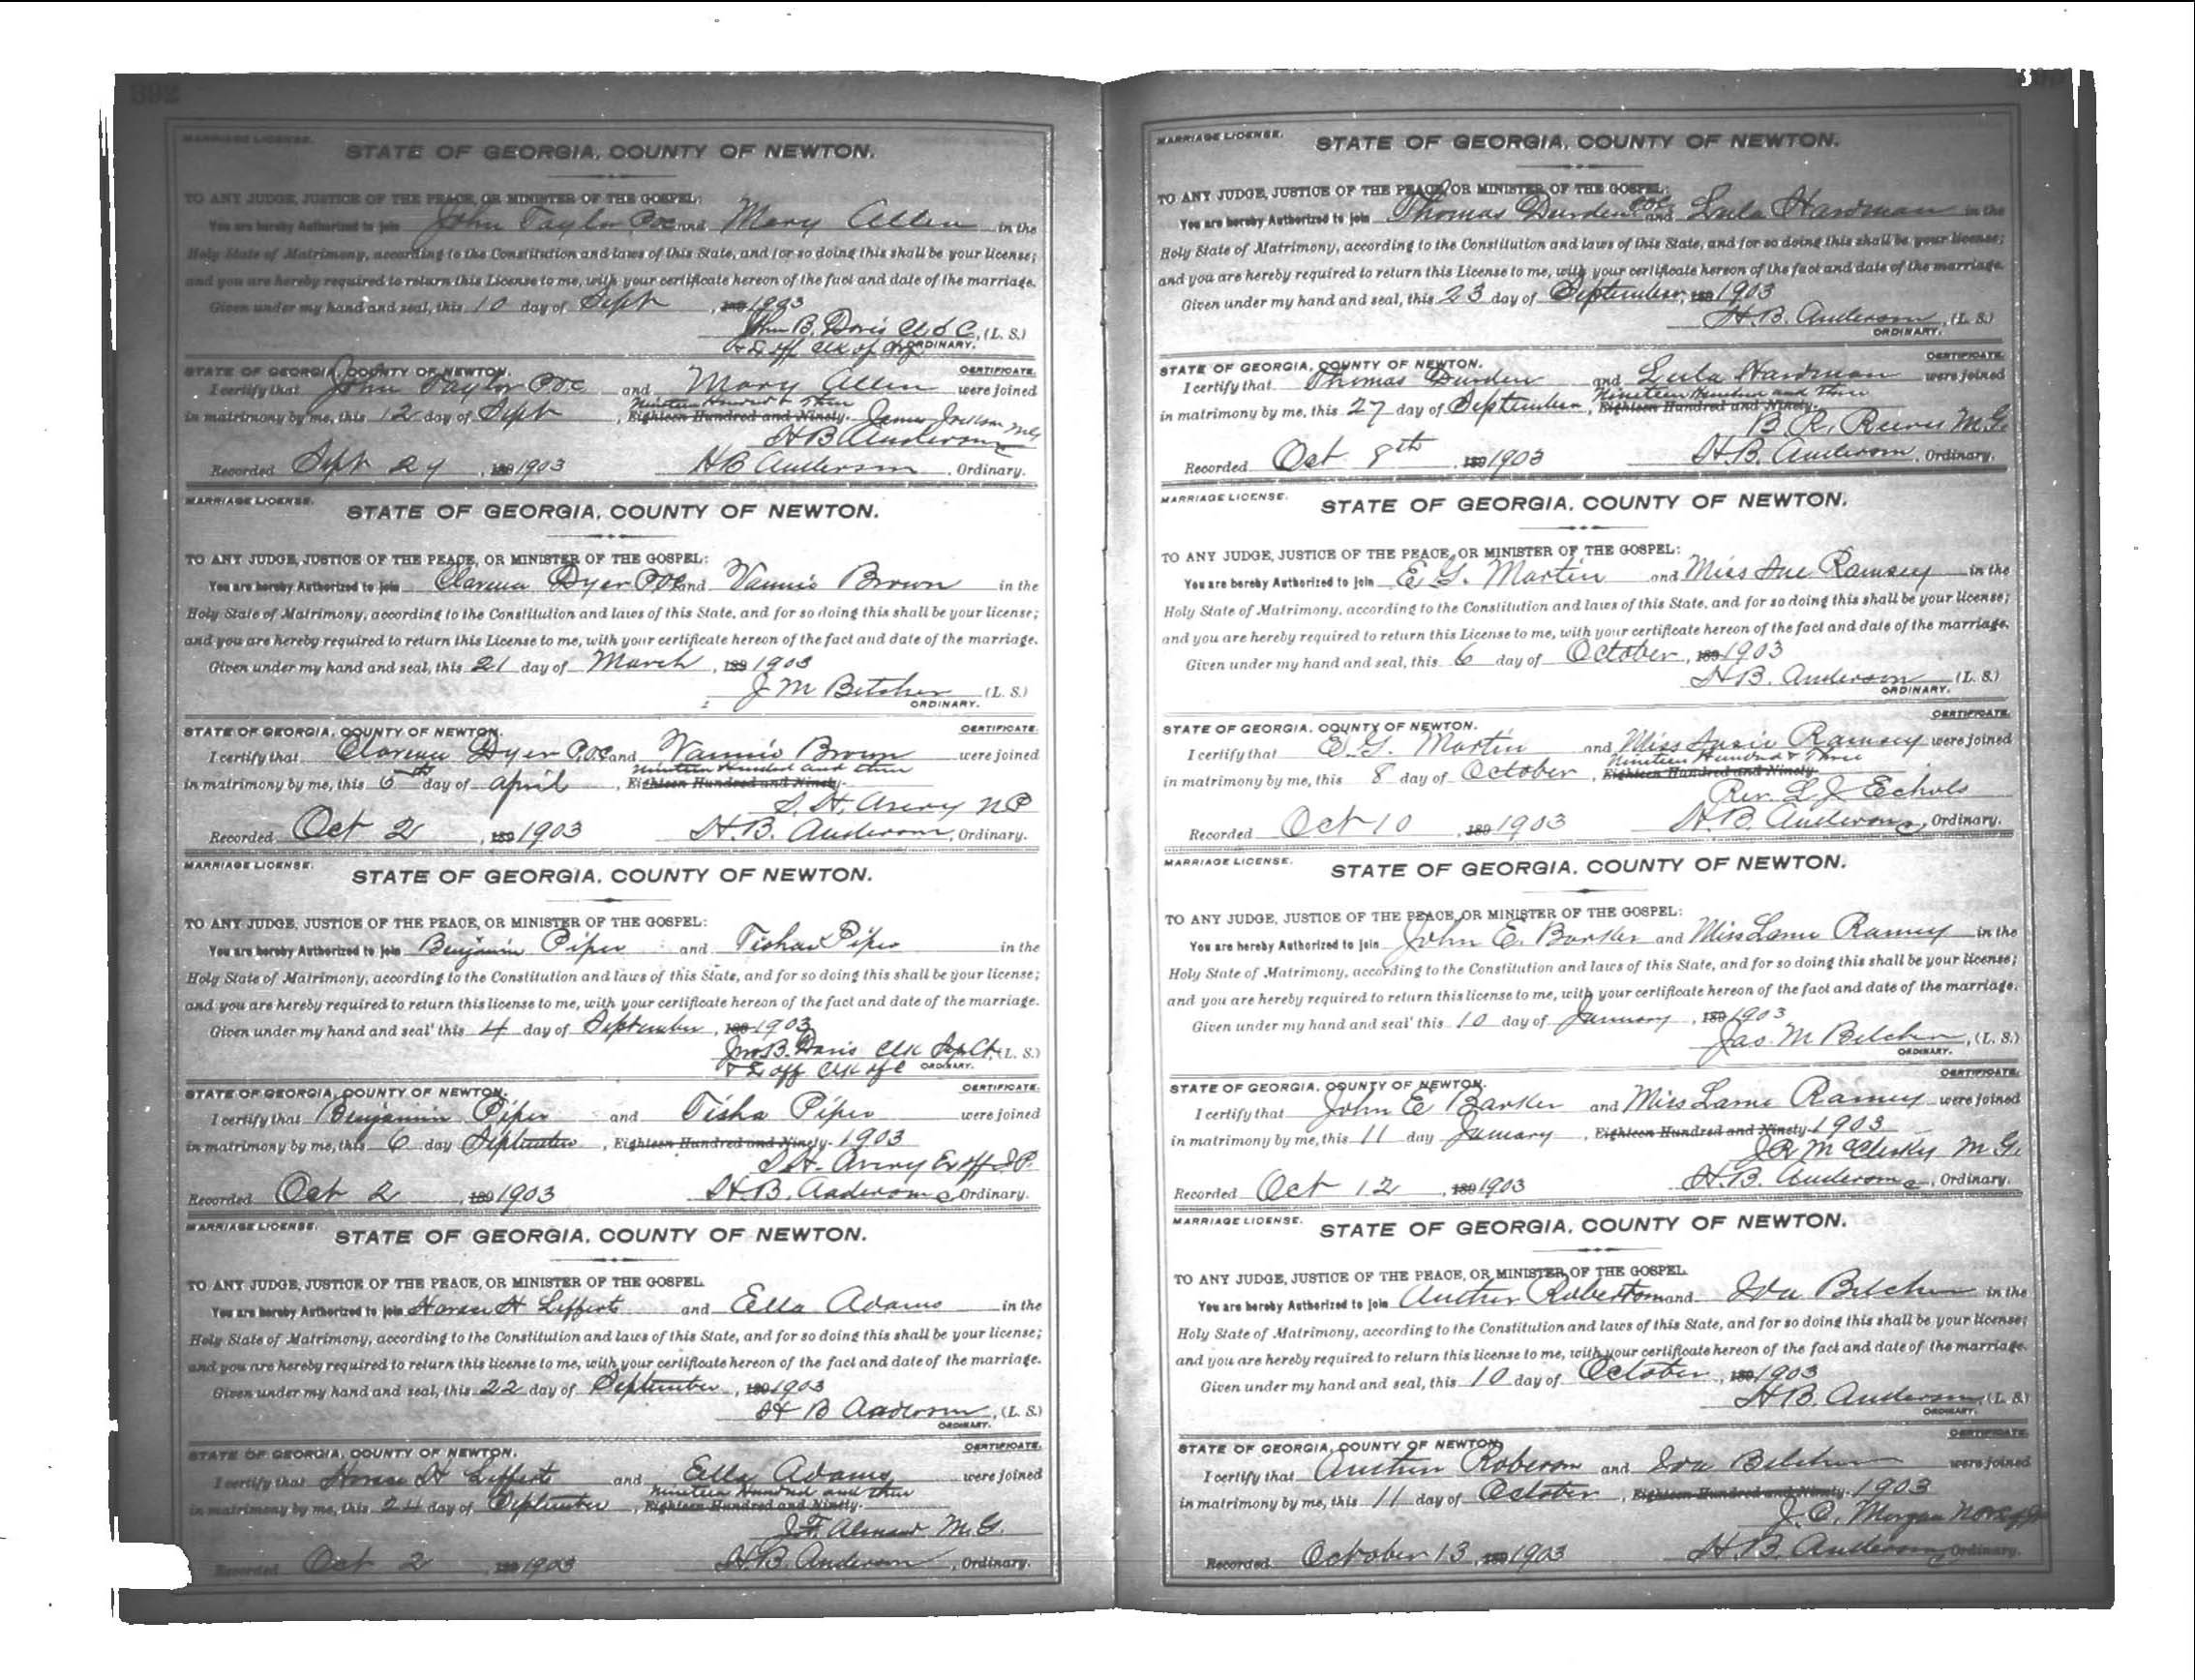 392
MARRIAGE LICENSE.
STATE OF GEORGIA, COUNTY OF NEWTON.
TO ANY JUDGE, JUSTICE OF THE PEACE, OR MINISTER OF THE GOSPEL:
You are hereby Authorized to join John Taylor POC and Mary Allen in the
Holy State of Matrimony, according to the Constitution and laws of this State, and for so doing this shall be your license;
and you are hereby required to return this License to me, with your certificate hereon of the fact and date of the marriage.
Given under my hand and seal, this 10 day of Sept, 189 1903
John B. Davis Cl S C, (L. S.)
& Ex off Clk of ORDINARY.
STATE OF GEORGIA, COUNTY OF NEWTON. CERTIFICATE.
I certify that John Taylor POC and Mary Allen were joined
Nineteen Hundred & Three
in matrimony by me, this 12 day of Sept, Eighteen Hundred and Ninety. James Jackson MG
H B Anderson
Recorded Sept 27, 189 1903 H B Anderson, Ordinary.
MARRIAGE LICENSE.
STATE OF GEORGIA, COUNTY OF NEWTON.
TO ANY JUDGE, JUSTICE OF THE PEACE, OR MINISTER OF THE GOSPEL:
You are hereby Authorized to join Clarence Dyer POC and Nannie Brown in the
Holy State of Matrimony, according to the Constitution and laws of this State, and for so doing this shall be your license;
and you are hereby required to return this License to me, with your certificate hereon of the fact and date of the marriage.
Given under my hand and seal, this 21 day of March, 189 1903
J M Belcher (L. S.)
ORDINARY.
STATE OF GEORGIA, COUNTY OF NEWTON. CERTIFICATE.
I certify that Clarence Dyer P.O.C and Nannie Brown were joined
Nineteen Hundred and three
in matrimony by me, this 5th day of April, Eighteen Hundred and Ninety.
S. H. Avery N P
Recorded Oct 2, 189 1903 H. B. Anderson, Ordinary.
MARRIAGE LICENSE.
STATE OF GEORGIA, COUNTY OF NEWTON.
TO ANY JUDGE, JUSTICE OF THE PEACE, OR MINISTER OF THE GOSPEL:
You are hereby Authorized to join Benjamin Piper and Tisha Piper in the
Holy State of Matrimony, according to the Constitution and laws of this State, and for so doing this shall be your license;
and you are hereby required to return this license to me, with your certificate hereon of the fact and date of the marriage.
Given under my hand and seal' this 4 day of September, 189 1903
Jno B. Davis Clk Sup Ct, (L. S.)
& Ex off Clk of C ORDINARY.
STATE OF GEORGIA, COUNTY OF NEWTON. CERTIFICATE.
I certify that Benjamin Piper and Tisha Piper were joined
in matrimony by me, this 6 day September, Eighteen Hundred and Ninety. 1903
S. H. Avery Ex off J P.
Recorded Oct 2, 189 1903 H. B. Anderson, Ordinary.
MARRIAGE LICENSE.
STATE OF GEORGIA, COUNTY OF NEWTON.
TO ANY JUDGE, JUSTICE OF THE PEACE, OR MINISTER OF THE GOSPEL
You are hereby Authorized to join Horace H and Ella Adams in the
Holy State of Matrimony, according to the Constitution and laws of this State, and for so doing this shall be your license;
and you are hereby required to return this license to me, with your certificate hereon of the fact and date of the marriage.
Given under my hand and seal, this 22 day of September, 189 1903
H B Anderson, (L. S.)
ORDINARY.
STATE OF GEORGIA, COUNTY OF NEWTON. CERTIFICATE.
I certify that Horace H and Ella Adams were joined
Nineteen Hundred and three
in matrimony by me, this 24 day of September, Eighteen Hundred and Ninety.
J. F. M. G.
Recorded Oct 2, 189 1903 H. B. Anderson, Ordinary.
MARRIAGE LICENSE.
STATE OF GEORGIA, COUNTY OF NEWTON.
TO ANY JUDGE, JUSTICE OF THE PEACE, OR MINISTER OF THE GOSPEL:
You are hereby Authorized to join Thomas Durden POC and Lula Hardman in the
Holy State of Matrimony, according to the Constitution and laws of this State, and for so doing this shall be your license;
and you are hereby required to return this License to me, with your certificate hereon of the fact and date of the marriage.
Given under my hand and seal, this 23 day of September, 189 1903
H. B. Anderson, (L. S.)
ORDINARY.
CERTIFICATE.
STATE OF GEORGIA, COUNTY OF NEWTON.
I certify that Thomas Durden and Lula Hardman were joined
Nineteen Hundred and three
in matrimony by me, this 27 day of September, Eighteen Hundred and Ninety.
B. R. M. G.
Recorded Oct 8th, 189 1903 H. B. Anderson, Ordinary.
MARRIAGE LICENSE.
STATE OF GEORGIA, COUNTY OF NEWTON.
TO ANY JUDGE, JUSTICE OF THE PEACE, OR MINISTER OF THE GOSPEL:
You are hereby Authorized to join E G. Martin and Miss Sue Ramsey in the
Holy State of Matrimony, according to the Constitution and laws of this State, and for so doing this shall be your license;
and you are hereby required to return this License to me, with your certificate hereon of the fact and date of the marriage.
Given under my hand and seal, this 6 day of October, 189 1903
H B. Anderson (L. S.)
ORDINARY.
CERTIFICATE.
STATE OF GEORGIA, COUNTY OF NEWTON.
I certify that E. G. Martin and Miss Susie Ramsey were joined
Nineteen Hundred & Three
in matrimony by me, this 8 day of October, Eighteen Hundred and Ninety.
Rev. L. J. Echols
Recorded Oct 10, 189 1903 H. B. Anderson, Ordinary.
MARRIAGE LICENSE.
STATE OF GEORGIA. COUNTY OF NEWTON.
TO ANY JUDGE, JUSTICE OF THE PEACE, OR MINISTER OF THE GOSPEL:
You are hereby Authorized to join John E. Barker and Miss Ramey in the
Holy State of Matrimony, according to the Constitution and laws of this State, and for so doing this shall be your license;
and you are hereby required to return this license to me, with your certificate hereon of the fact and date of the marriage.
Given under my hand and seal' this 10 day of January, 189 1903
Jas. M Belcher, (L. S.)
ORDINARY.
CERTIFICATE.
STATE OF GEORGIA, COUNTY OF NEWTON.
I certify that John E Barker and Miss Ramey were joined
in matrimony by me, this 11 day January, Eighteen Hundred and Ninety. 1903
J R McCleskey M. G.
Recorded Oct 12, 189 1903 H. B. Anderson, Ordinary.
MARRIAGE LICENSE.
STATE OF GEORGIA. COUNTY OF NEWTON.
TO ANY JUDGE, JUSTICE OF THE PEACE, OR MINISTER OF THE GOSPEL.
You are hereby Authorized to join Robertson and Ida Belcher in the
Holy State of Matrimony, according to the Constitution and laws of this State, and for so doing this shall be your license;
and you are hereby required to return this license to me, with your certificate hereon of the fact and date of the marriage.
Given under my hand and seal, this 10 day of October, 189 1903
H B. Anderson, (L. S.)
ORDINARY.
CERTIFICATE.
STATE OF GEORGIA, COUNTY OF NEWTON.
I certify that Roberson and Ida Belcher were joined
in matrimony by me, this 11 day of October, Eighteen Hundred and Ninety. 1903
J. C. Morgan
Recorded October 13, 189 1903 H. B. Anderson, Ordinary.